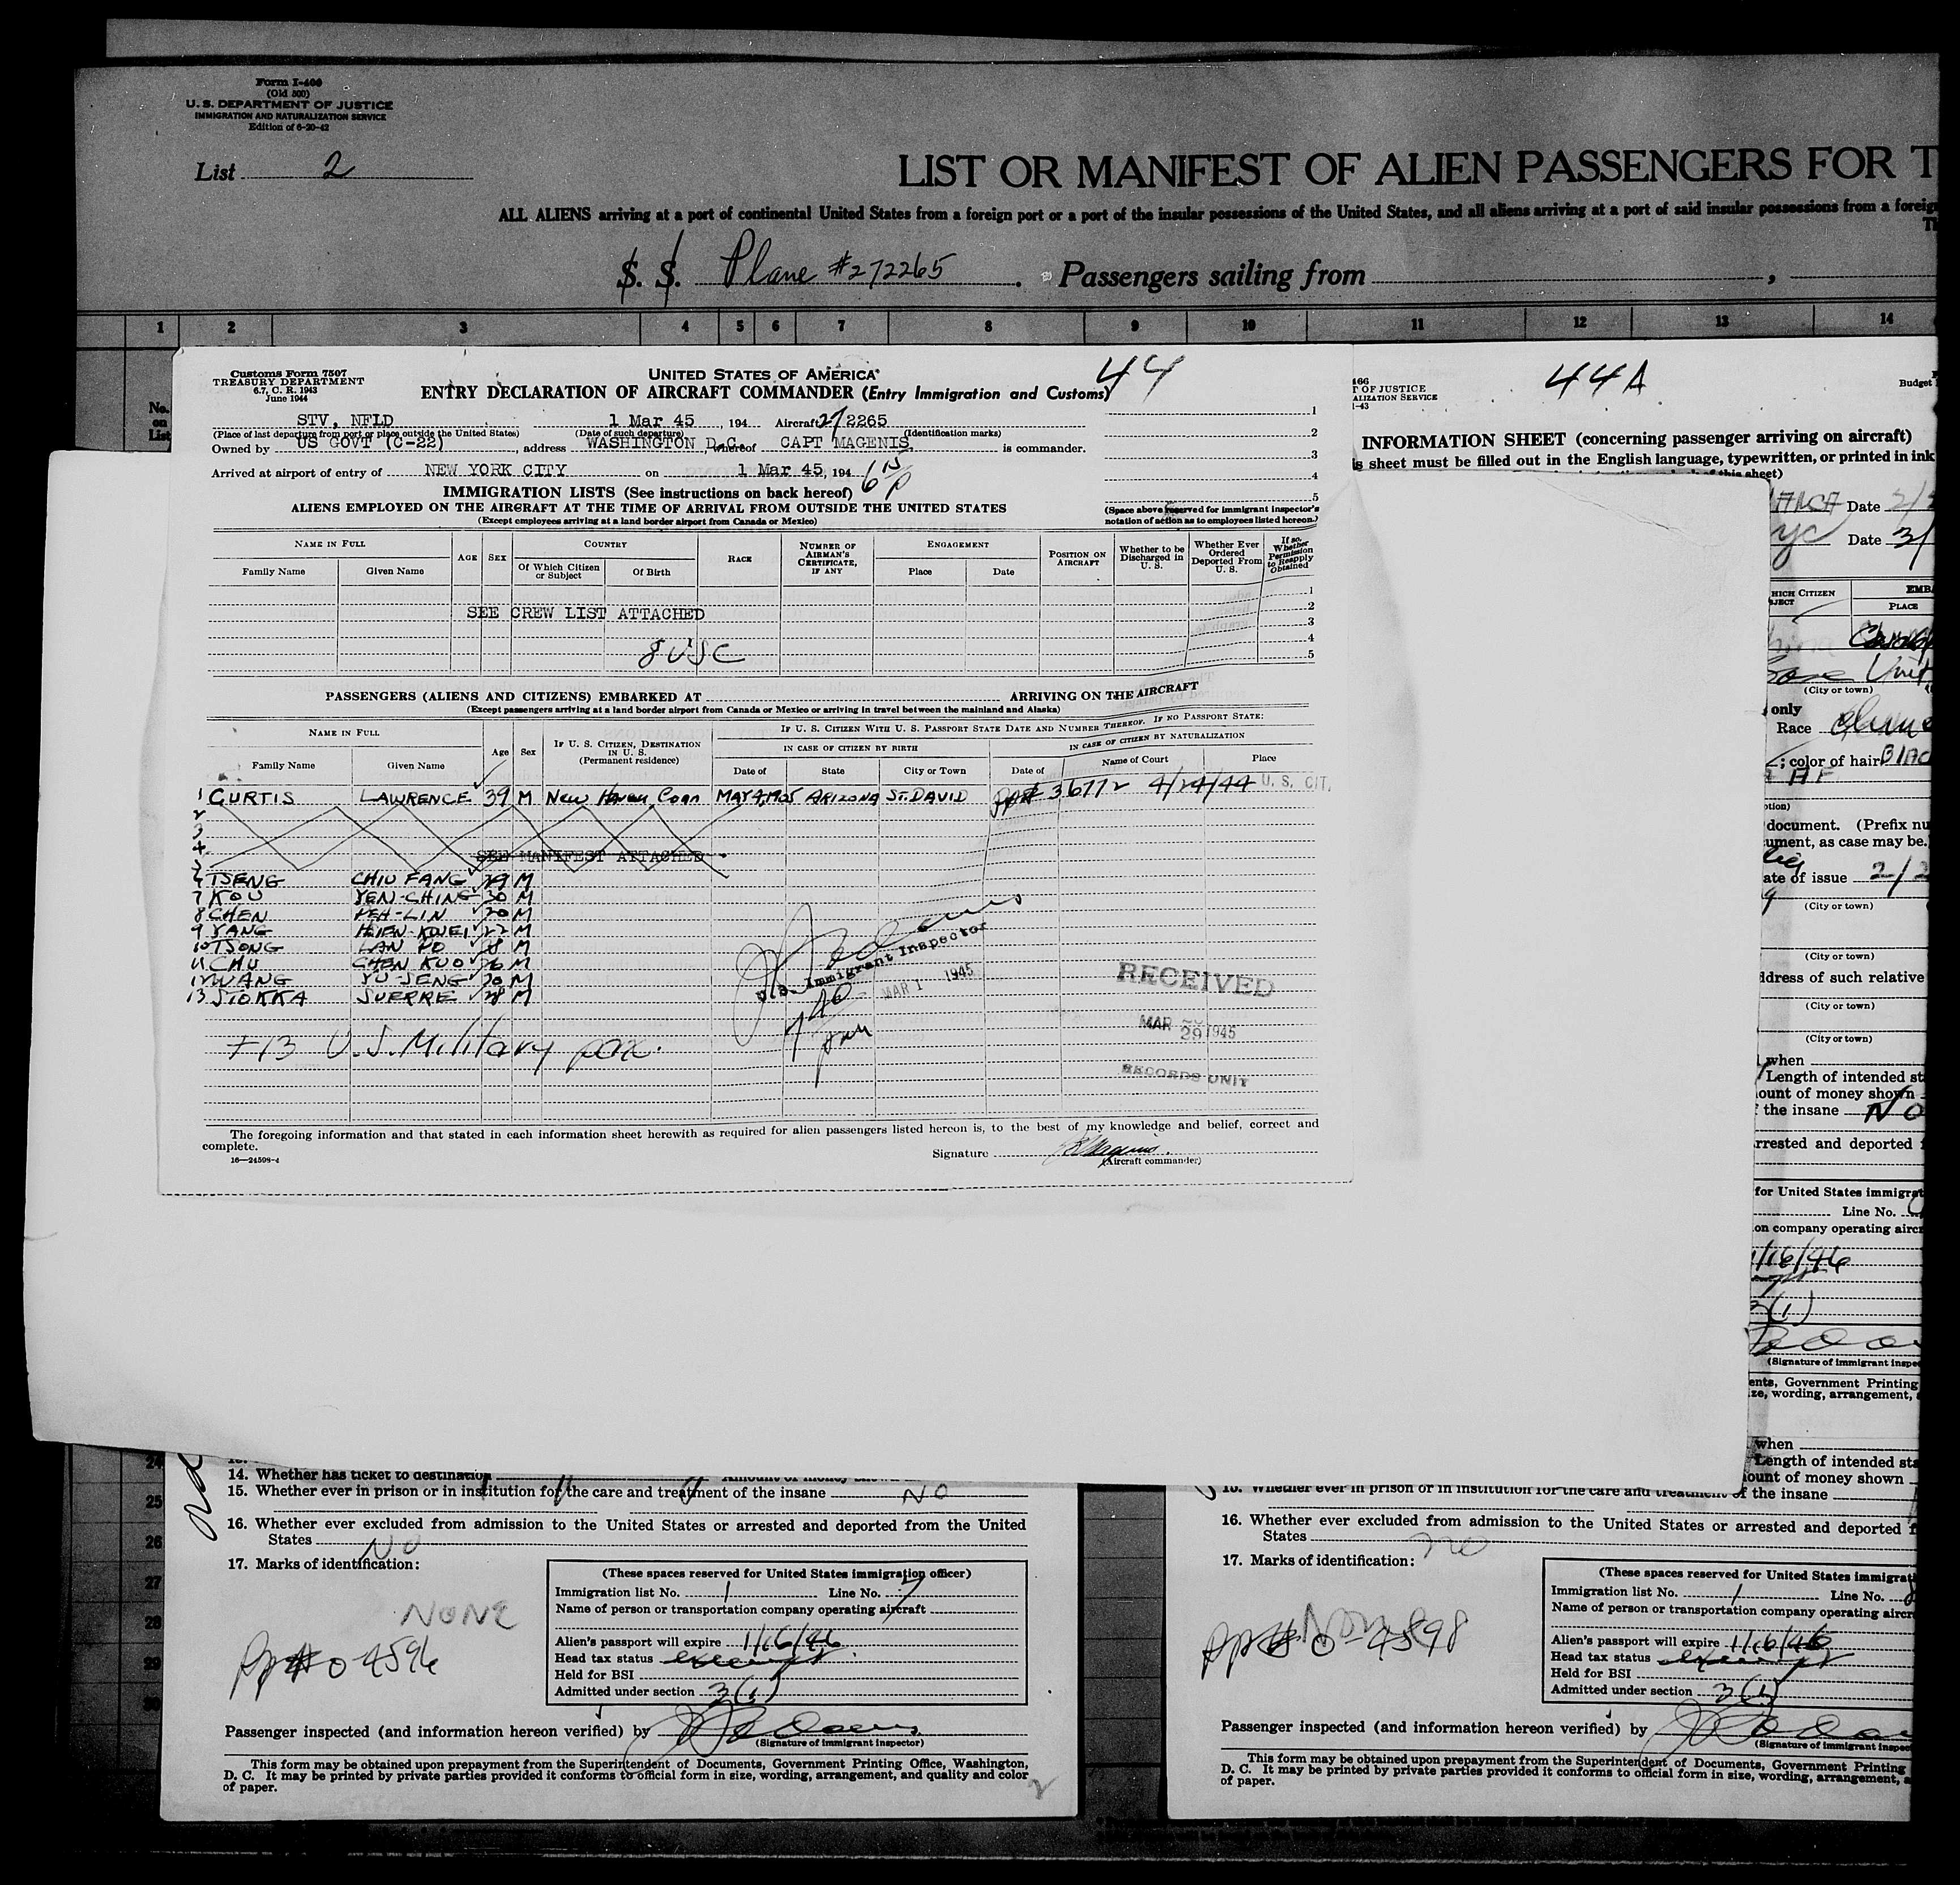 Form I-400
(Old 500)
U. S. DEPARTMENT OF JUSTICE
IMMIGRATION AND NATURALIZATION SERVICE
Edition of 6-20-42
List 2
LIST OR MANIFEST OF ALIEN PASSENGERS FOR T
ALL ALIENS arriving at a port of continental United States from a foreign port or a port of the insular possessions of the United States, and all aliens arriving at a port of said insular possessions from a foreig
S. S. Plane #272265. Passengers sailing from ,
1 2 3 4 5 6 7 8 9 10 11 12 13 14
No. on List
Customs Form 7507
TREASURY DEPARTMENT
6.7, C. R. 1943
June 1944
UNITED STATES OF AMERICA
44
ENTRY DECLARATION OF AIRCRAFT COMMANDER (Entry Immigration and Customs)
STV, NFLD 1 Mar 45, 194 Aircraft 27 2265
(Place of last departure from port or place outside the United States) (Date of such departure) (Identification marks)
Owned by US GOVT (C-22), address WASHINGTON D.C., whereof CAPT MAGENIS, is commander.
Arrived at airport of entry of NEW YORK CITY on 1 Mar 45, 194 6 15 P
IMMIGRATION LISTS (See instructions on back hereof)
ALIENS EMPLOYED ON THE AIRCRAFT AT THE TIME OF ARRIVAL FROM OUTSIDE THE UNITED STATES
(Except employees arriving at a land border airport from Canada or Mexico)
1
2
3
4
5
(Space above reserved for immigrant inspector's notation of action as to employees listed hereon.)
NAME IN FULL
Family Name Given Name
AGE SEX
COUNTRY
Of Which Citizen or Subject Of Birth
RACE
NUMBER OF AIRMAN'S CERTIFICATE, IF ANY
ENGAGEMENT
Place Date
POSITION ON AIRCRAFT
Whether to be Discharged in U. S.
Whether Ever Ordered Deported From U. S.
If so, Whether Permission to Reapply Obtained
1
SEE CREW LIST ATTACHED 2
3
8 USC 4
5
PASSENGERS (ALIENS AND CITIZENS) EMBARKED AT ARRIVING ON THE AIRCRAFT
(Except passengers arriving at a land border airport from Canada or Mexico or arriving in travel between the mainland and Alaska)
NAME IN FULL
Family Name Given Name
Age Sex
IF U. S. CITIZEN, DESTINATION IN U. S.
(Permanent residence)
IF U. S. CITIZEN WITH U. S. PASSPORT STATE DATE AND NUMBER THEREOF. IF NO PASSPORT STATE:
IN CASE OF CITIZEN BY BIRTH
IN CASE OF CITIZEN BY NATURALIZATION
Date of State City or Town Date of Name of Court Place
1 CURTIS LAWRENCE 39 M New Haven Conn MAY 9, 1905 ARIZONA ST. DAVID 36772 4/24/44 U. S. CIT.
2
3
4
5
SEE MANIFEST ATTACHED
6 TSENG CHIU FANG 29 M
7 KOU YEN-CHING 30 M
8 CHEN PEH-LIN 20 M
9 YANG HSIEN-KUEI 22 M
10 TSONG LAN PO M
11 CHU CHEN KUO M
12 WANG YU-SENG 20 M
13 STOKKA SVERRE 28 M
U.S. Immigrant Inspector
MAR 1 1945
7 40 PM
RECEIVED
MAR 29 1945
RECORDS UNIT
+13 U.S. Military pax.
The foregoing information and that stated in each information sheet herewith as required for alien passengers listed hereon is, to the best of my knowledge and belief, correct and complete.
16—24598-4
Signature
(Aircraft commander)
166
T OF JUSTICE
ALIZATION SERVICE
1-43
44A
Budget
INFORMATION SHEET (concerning passenger arriving on aircraft)
s sheet must be filled out in the English language, typewritten, or printed in ink
of this sheet)
Date
Date 3/
HICH CITIZEN
JECT
EMB
PLACE
Unit
(City or town)
only
Race
; color of hair BLAC
document. (Prefix nu
ument, as case may be.)
ate of issue 2/2
(City or town)
(City or town)
ddress of such relative
(City or town)
(City or town)
when
Length of intended st
ount of money shown
the insane NO
rrested and deported f
for United States immigrat
Line No.
on company operating aircr
1/16/46
3(1)
(Signature of immigrant inspe
ents, Government Printing
ze, wording, arrangement,
when
Length of intended sta
ount of money shown
24
25
26
27
28
29
30
14. Whether has ticket to destination
15. Whether ever in prison or in institution for the care and treatment of the insane NO
16. Whether ever excluded from admission to the United States or arrested and deported from the United States NO
17. Marks of identification:
NONE
pp# 0-4596
(These spaces reserved for United States immigration officer)
Immigration list No. 1 Line No. 7
Name of person or transportation company operating aircraft
Alien's passport will expire 1/16/46
Head tax status exempt
Held for BSI
Admitted under section 3(1)
Passenger inspected (and information hereon verified) by
(Signature of immigrant inspector)
This form may be obtained upon prepayment from the Superintendent of Documents, Government Printing Office, Washington, D. C. It may be printed by private parties provided it conforms to official form in size, wording, arrangement, and quality and color of paper.
2
15. Whether ever in prison or in institution for the care and treatment of the insane
16. Whether ever excluded from admission to the United States or arrested and deported f
States no
17. Marks of identification:
None
pp# 0-4598
(These spaces reserved for United States immigrat
Immigration list No. 1 Line No. 8
Name of person or transportation company operating aircr
Alien's passport will expire 1/16/46
Head tax status exempt
Held for BSI
Admitted under section 3(1)
Passenger inspected (and information hereon verified) by
(Signature of immigrant inspec
This form may be obtained upon prepayment from the Superintendent of Documents, Government Printing
D. C. It may be printed by private parties provided it conforms to official form in size, wording, arrangement, a
of paper.